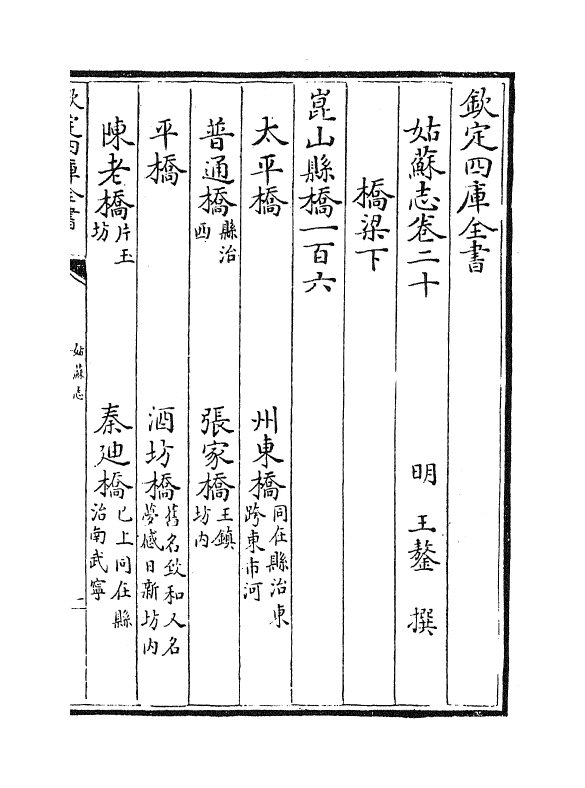 欽定四庫全書
姑蘇志卷二十
明 王鏊 撰
橋梁下
崑山縣橋一百六
太平橋 州東橋同在縣治東跨東市河
普通橋縣治西 張家橋王鎮坊内
平橋 酒坊橋舊名致和人名夢感日新坊内
陳老橋片玉坊 秦廸橋已上同在縣治南武寧
欽定四庫全書
姑蘇志